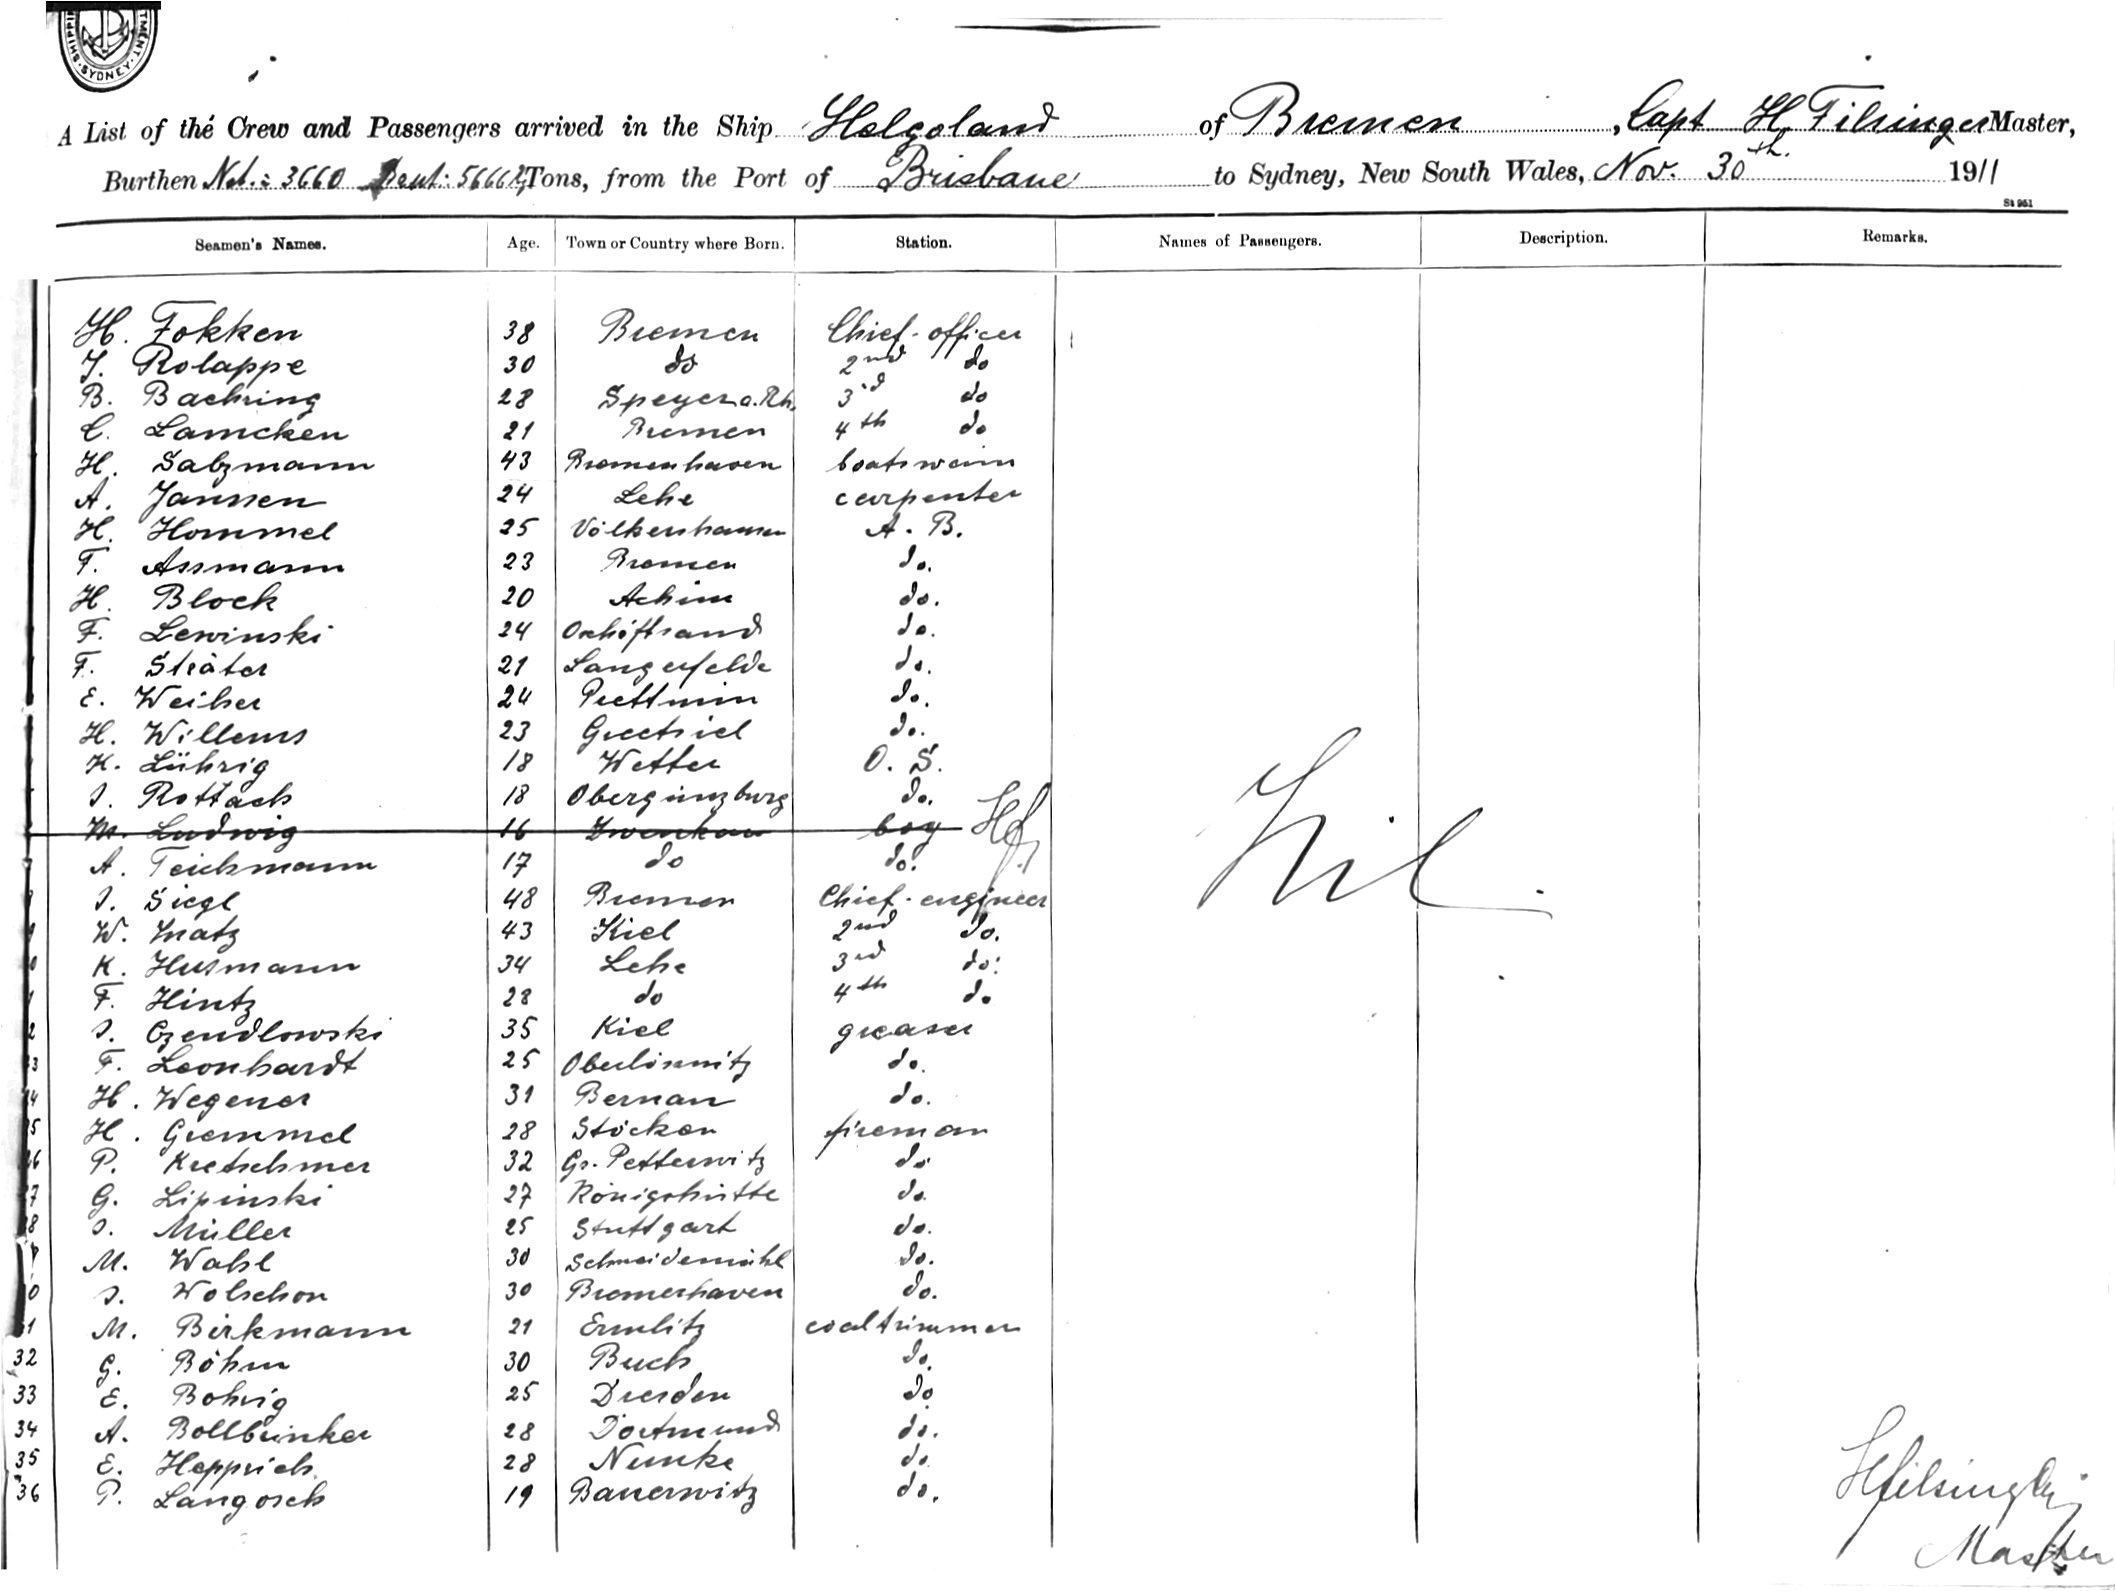 SHIPPING SYDNEY
A List of the Crew and Passengers arrived in the Ship Helgoland of Bremen, Capt H. Filsinger Master,
Burthen Net.: 3660 Tons, from the Port of Brisbane to Sydney, New South Wales, Nov. 30th. 1911
St 951
Seamen's Names. Age. Town or Country where Born. Station. Names of Passengers. Description. Remarks.
H. Fokken 38 Bremen Chief-officer
J. Rolappe 30 do 2nd do
B. Baehring 28 Speyer a. Rh. 3rd do
C. Lamcken 21 Bremen 4th do
H. Salzmann 43 Bremenhaven boatswain
A. Janssen 24 Lehe carpenter
H. Hommel 25 Völkershausen A. B.
F. Assmann 23 Bremen do.
H. Block 20 Achim do.
F. Lewinski 24 do.
F. Sträter 21 Langerfelde do.
E. Weiher 24 Prettmin do.
H. Willems 23 Greetsiel do.
K. Lührig 18 Wetter O. S.
J. Rottach 18 Obergünzburg do.
M. Ludwig 16 Zwenkau boy
A. Teichmann 17 do do.
J. Siegl 48 Bremen Chief-engineer
W. Matz 43 Kiel 2nd do.
K. Husmann 34 Lehe 3rd do.
F. Hintz 28 do 4th do
J. Czendlowski 35 Kiel greaser
F. Leonhardt 25 do.
H. Wegener 31 Bernau do.
H. Gremmel 28 Stöcken fireman
26 P. Kretschmer 32 Gr. Petterwitz do
27 G. Lipinski 27 Königshütte do.
28 J. Müller 25 Stuttgart do.
M. Wahl 30 Schneidemühl do.
J. Wolschon 30 Bremerhaven do.
31 M. Birkmann 21 Ermlitz coaltrimmer
32 G. Böhm 30 Buch do.
33 E. Bohrig 25 Dresden do
34 A. Bollbrinker 28 Dortmund do.
35 E. Hepprich 28 do
36 P. Langosch 19 Bauerwitz do.
Nil.
HFilsinger
Master